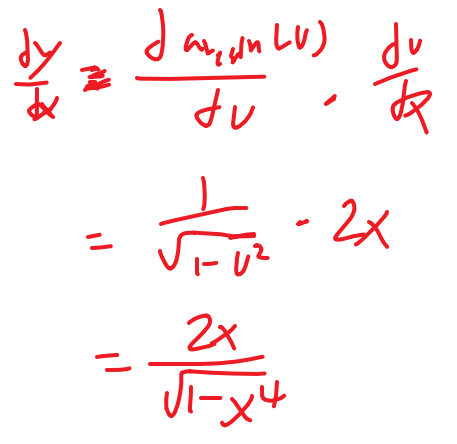 dy/dx = d arcsin(u)/du · du/dx
= 1/√(1-u²) · 2x
= 2x/√(1-x⁴)